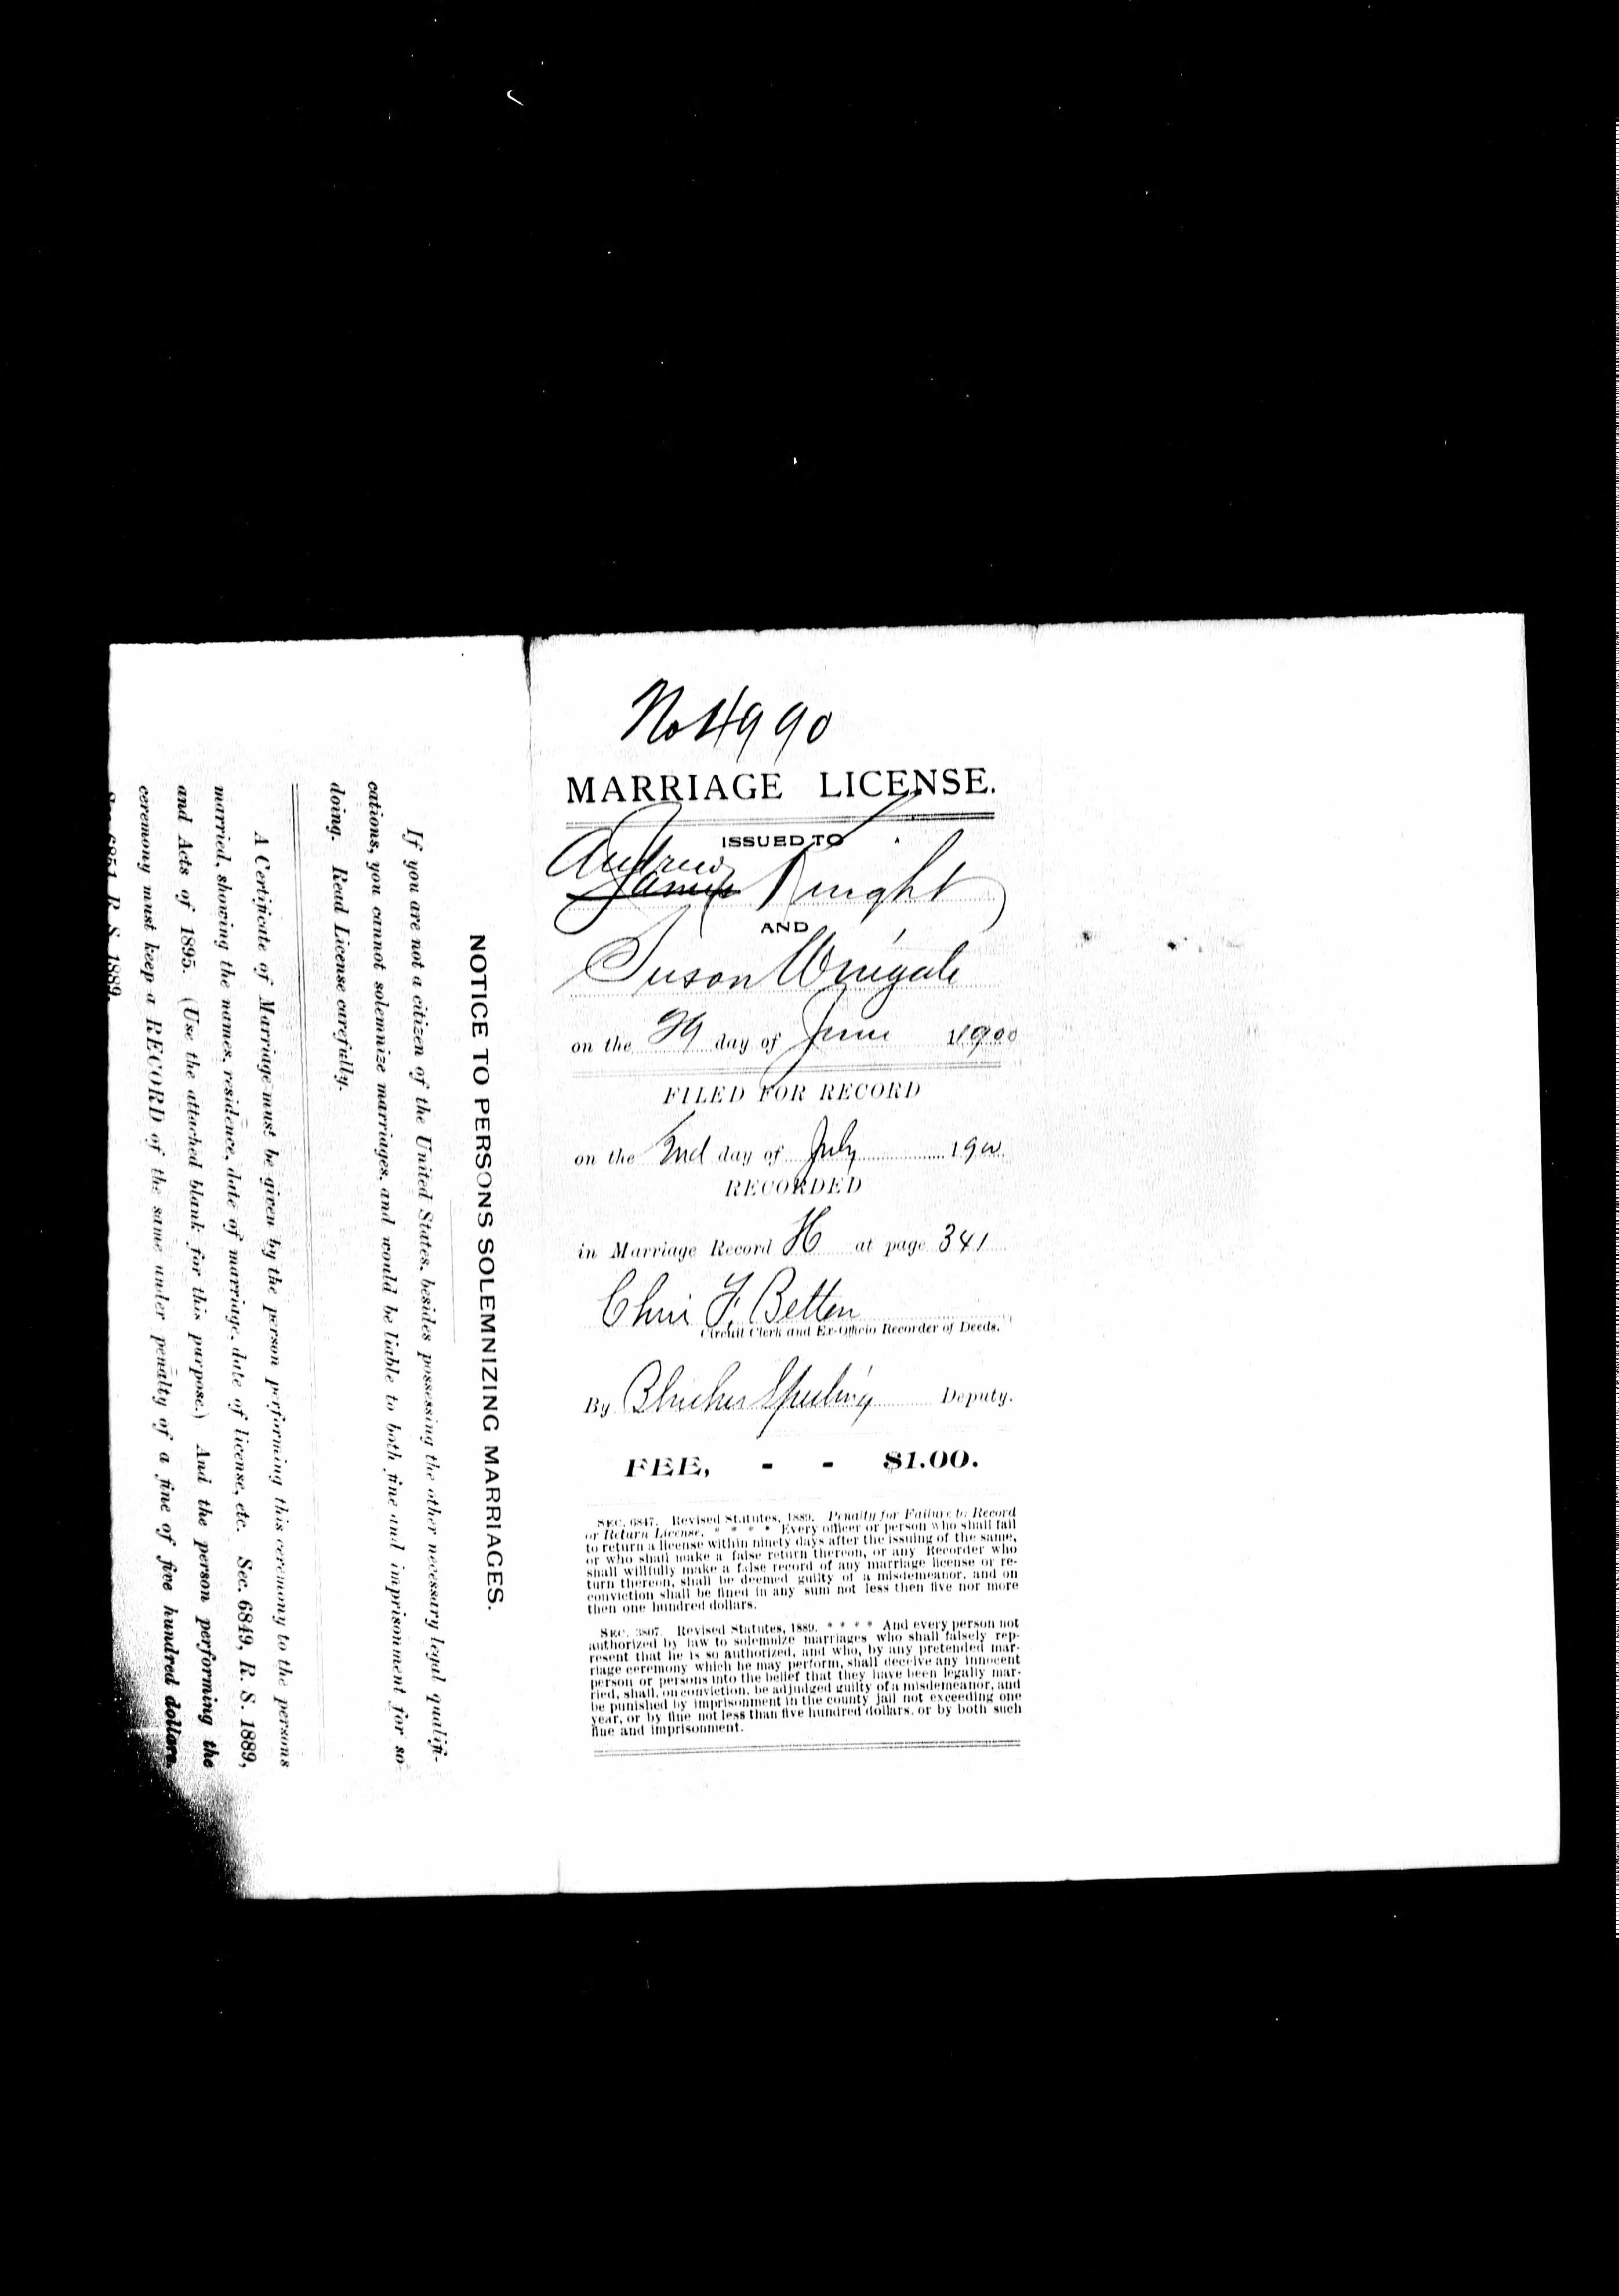 No 4990
MARRIAGE LICENSE.
ISSUED TO
Andrew
James Knight
AND
Suson Wingate
on the 29 day of June 1900
FILED FOR RECORD
on the 2nd day of July 190
RECORDED
in Marriage Record H at page 341
Chris F. Betten
Circuit Clerk and Ex-Officio Recorder of Deeds.
By Blucher Sperling Deputy.
FEE, - - $1.00.
SEC. 6847. Revised Statutes, 1889. Penalty for Failure to Record
or Return License. * * * * Every officer or person who shall fail
to return a license within ninety days after the issuing of the same,
or who shall make a false return thereon, or any Recorder who
shall willfully make a false record of any marriage license or re-
turn thereon, shall be deemed guilty of a misdemeanor, and on
conviction shall be fined in any sum not less then five nor more
then one hundred dollars.
SEC. 3807. Revised Statutes, 1889. * * * * And every person not
authorized by law to solemnize marriages who shall falsely rep-
resent that he is so authorized, and who, by any pretended mar-
riage ceremony which he may perform, shall deceive any innocent
person or persons into the belief that they have been legally mar-
ried, shall, on conviction, be adjudged guilty of a misdemeanor, and
be punished by imprisonment in the county jail not exceeding one
year, or by fine not less than five hundred dollars, or by both such
fine and imprisonment.
NOTICE TO PERSONS SOLEMNIZING MARRIAGES.
If you are not a citizen of the United States, besides possessing the other necessary legal qualifi-
cations, you cannot solemnize marriages, and would be liable to both fine and imprisonment for so
doing. Read License carefully.
A Certificate of Marriage must be given by the person performing this ceremony to the persons
married, showing the names, residence, date of marriage, date of license, etc. Sec. 6849, R. S. 1889,
and Acts of 1895. (Use the attached blank for this purpose.) And the person performing the
ceremony must keep a RECORD of the same under penalty of a fine of five hundred dollars.
Sec. 6851, R. S. 1889.